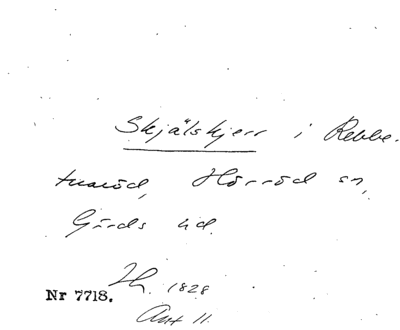 Skjälskjerr i Rebbe-
tuaröd, Hörröd sn,
Gärds hd.
Th. 1828
Nr 7718.
Art 11.